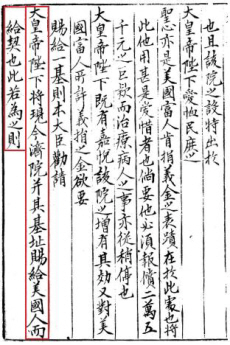 也且該院之設特出於
大皇帝陛下愛恤民庶之
聖心亦是美國富人肯捐義金之表凟在於此處也將
此他用甚是愛惜者也倘要他必須報償二萬五
千元之巨款而治療病人之事亦從稍停也
大皇帝陛下既有嘉悅該院之增有其効又對美
國富人所計義捐之金欲要
賜給一基則本大臣勸請
大皇帝陛下將現今濟院并其基址賜給美國人而
給契也此若為之則